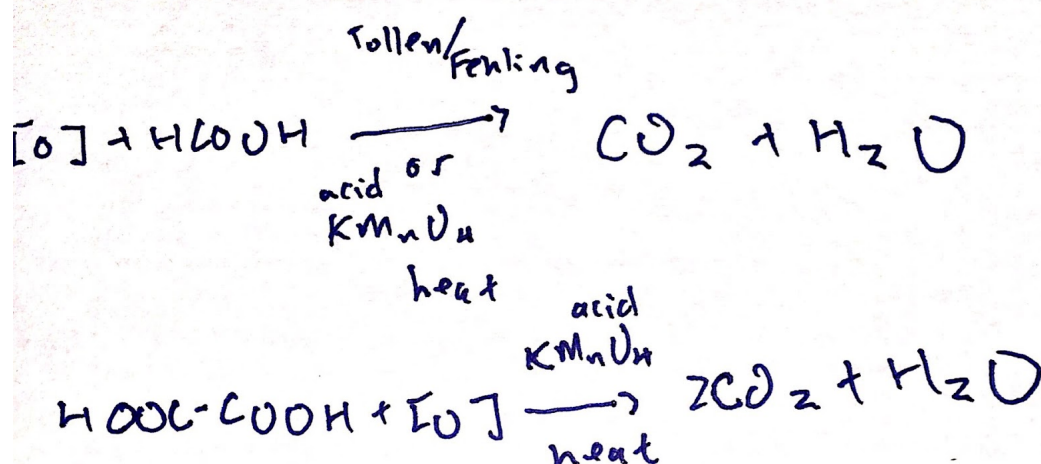 Tollen/Fehling
[O] + HCOOH → CO₂ + H₂O
acid or
KMnO₄
heat
acid
KMnO₄
HOOC-COOH + [O] → 2CO₂ + H₂O
heat